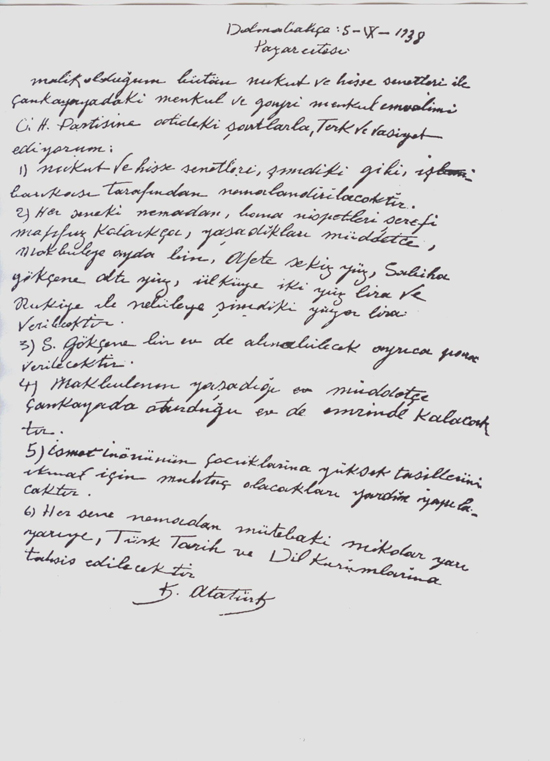 Dolmabahçe: 5-IX-1938
Pazarertesi
malik olduğum bütün nukut ve hisse senetleri ile
Çankayayadaki menkul ve gayri menkul emvalimi
C. H. Partisine atideki şartlarla, Terk ve vasiyet
ediyorum:
1) nukut ve hisse senetleri, şimdiki gibi, iş
bankası tarafından nemalandırılacaktır.
2) Her seneki nemadan, bana nispetleri şerefi
mahfuz kaldıkça, yaşadıkları müddetçe,
Makbuleye ayda bin, Afete sekiz yüz, Sabiha
gökçene altı yüz, ülküye iki yüz lira ve
Rukiye ile nebileye şimdiki yüzer lira
verilecektir.
3) S. Gökçene bir ev de alınabilecek ayrıca para
verilecektir.
4) Makbulenin yaşadığı müddetçe
Çankayada oturduğu ev de emrinde kalacak
tır.
5) ismet inönünün çocuklarına yüksek tahsillerini
ikmal için muhtaç olacakları yardım yapıla-
caktır.
6) Her sene nemadan mütebaki miktar yarı
yarıya, Türk Tarih ve Dil Kurumlarına
tahsis edilecektir
K. Atatürk